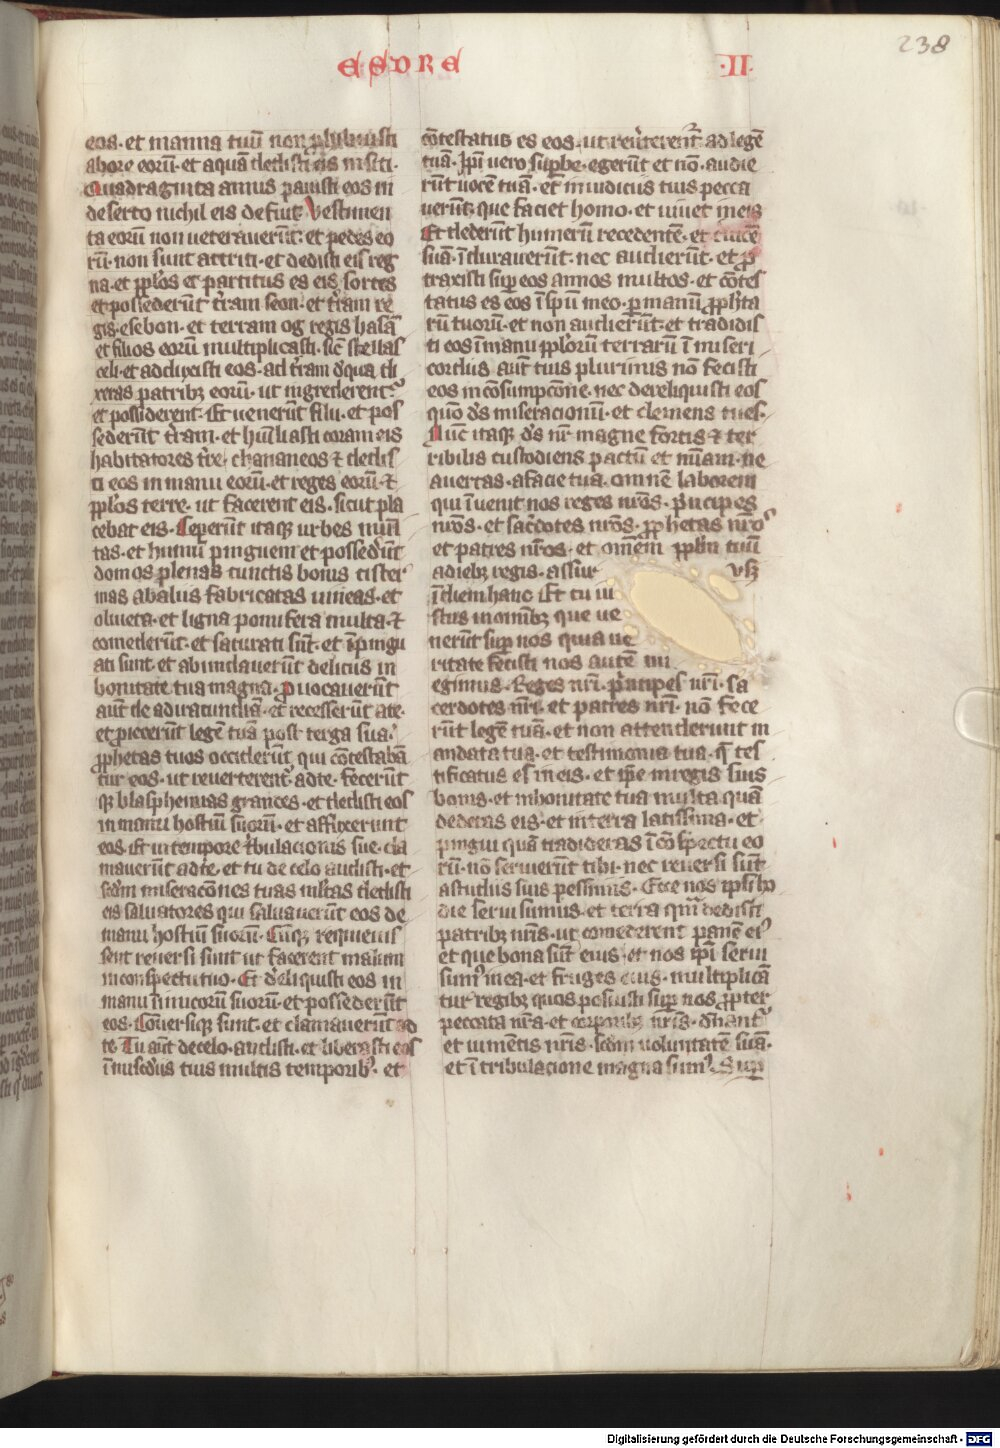 ESDRE
·II·
238
eos· et manna tuū non ꝓhibuisti
abore eorū· et aquā dedisti eis insiti·
Quadraginta annis pauisti eos in
deserto nichil eis defuit· Vestimen
ta eorū non ueterauerūt· et pedes eo
rū· non sunt attriti· et dedisti eis reg
na· et pp̄los et partitus es eis sortes
et possederūt tr̄am seon· et tr̄am re
gis· esebon· et terram og regis basā
et filios eorū multiplicasti· sic̄ stellas
celi· et adduxisti eos· ad tr̄am de qua di
xeras patribꝫ eorū· ut ingrederent᷑
et possiderent· Et uenerūt filii· et pos
sederūt tr̄am· et hūiliasti coram eis
habitatores tr̄e· chananeos ⁊ dedis
ti eos in manu eorū· et reges eorū· ⁊
pp̄los terre· ut facerent eis· sicut pla
cebat eis· Ceperūt itaqꝫ urbes muni
tas· et humū pinguem et possederūt
domos plenas cunctis bonis cister
nas abaliis fabricatas uineas· et
oliueta· et ligna pomifera multa· ⁊
comederūt· et saturati sūt· et īpingu
ati sunt· et abundauerūt deliciis in
bonitate tua magna· Prouocauerūt
aūt te adiracundiā· et recesserūt ate·
et proiecerūt legē tuā post terga sua·
ꝓphetas tuos occiderūt qui cōtestabā
tur eos· ut reuerterent᷑ adte· fecerūt
qꝫ blasphemias grandes· et dedisti eos
in manu hostiū suorū· et afflixerunt
eos· Et in tempore tribulacionis sue· cla
mauerūt adte· et tu de celo audisti· et
scd̄m miseracōnes tuas ml̄tas dedisti
eis saluatores qui saluauerūt eos de
manu hostiū suorū· Cūqꝫ requieuis
sent reuersi sunt ut facerent malum
inconspectu tuo· Et deliquisti eos in
manu īimicorū suorū· et possederūt
eos· Conuersiqꝫ sunt· et clamauerūt ad
te· Tu aūt de celo· audisti· et liberasti eos
ī misc̄diis tuis multis temporibꝫ· et
cōtestatus es eos· ut reūterent᷑ ad legē
tuā· Ip̄i uero suꝑbe· egerūt et nō· audie
rūt uocē tuā· et in iudiciis tuis pecca
uerūt· que faciet homo· et uiuet in eis
Et dederūt humerū recedentē· et ceruicē
suā· īdurauerūt· nec audierūt· et ꝓ
traxisti suꝑ eos annos multos· et cōtes
tatus es eos ī sp̄u meo· ꝑ manū ꝓph̄ta
rū tuorū· et non audierūt· et tradidis
ti eos ī manu pp̄lorū terrarū ī miseri
cordiis aūt tuis plurimis nō fecisti
eos in cōsumpcōne· nec dereliquisti eos
quō d̄s miseracionū· et clemens tu es·
Nūc itaqꝫ d̄s nr̄ magne fortis ⁊ ter
ribilis custodiens pactū et mīam· ne
auertas· a facie tua· omnē laborem
qui īuenit nos reges nr̄os· prīcipes
nr̄os· et sacerdotes nr̄os· ꝓphetas nr̄os
et patres nr̄os· et omnem pp̄lm tuū
adiebꝫ regis· assur vsqꝫ
ī diem hanc Et tu iu
stus in omībꝫ que ue
nerūt suꝑ nos quia ue
ritate fecisti nos autē im
egimus· Reges nr̄i· prīncipes nr̄i· sa
cerdotes nr̄i· et patres nr̄i· nō fece
rūt legē tuā· et non attenderunt m
andata tua· et testimonia tua· q̄ tes
tificatus es in eis· et ip̄e in regis suis
bonis· et in bonitate tua multa quā
dederas eis· et in terra latissima· et
pingui quā tradideras ī cōspectu eo
rū· nō seruierūt tibi· nec reuersi sūt
a studiis suis pessimis· Ecce nos ip̄si ho
die serui sumus· et terra quā dedisti
patribꝫ nr̄is· ut comederent panē eiꝰ
et que bona sūt eius· et nos ip̄i serui
sumꝰ in ea· et fruges eius· multiplicā
tur regibꝫ quos posuisti suꝑ nos ꝓpter
peccata nr̄a· et corporibꝫ nr̄is· dn̄ant᷑
et iumentis nr̄is· scd̄m uoluntatē suā·
et ī tribulacione magna sumꝰ· Suꝑ
Digitalisierung gefördert durch die Deutsche Forschungsgemeinschaft - DFG